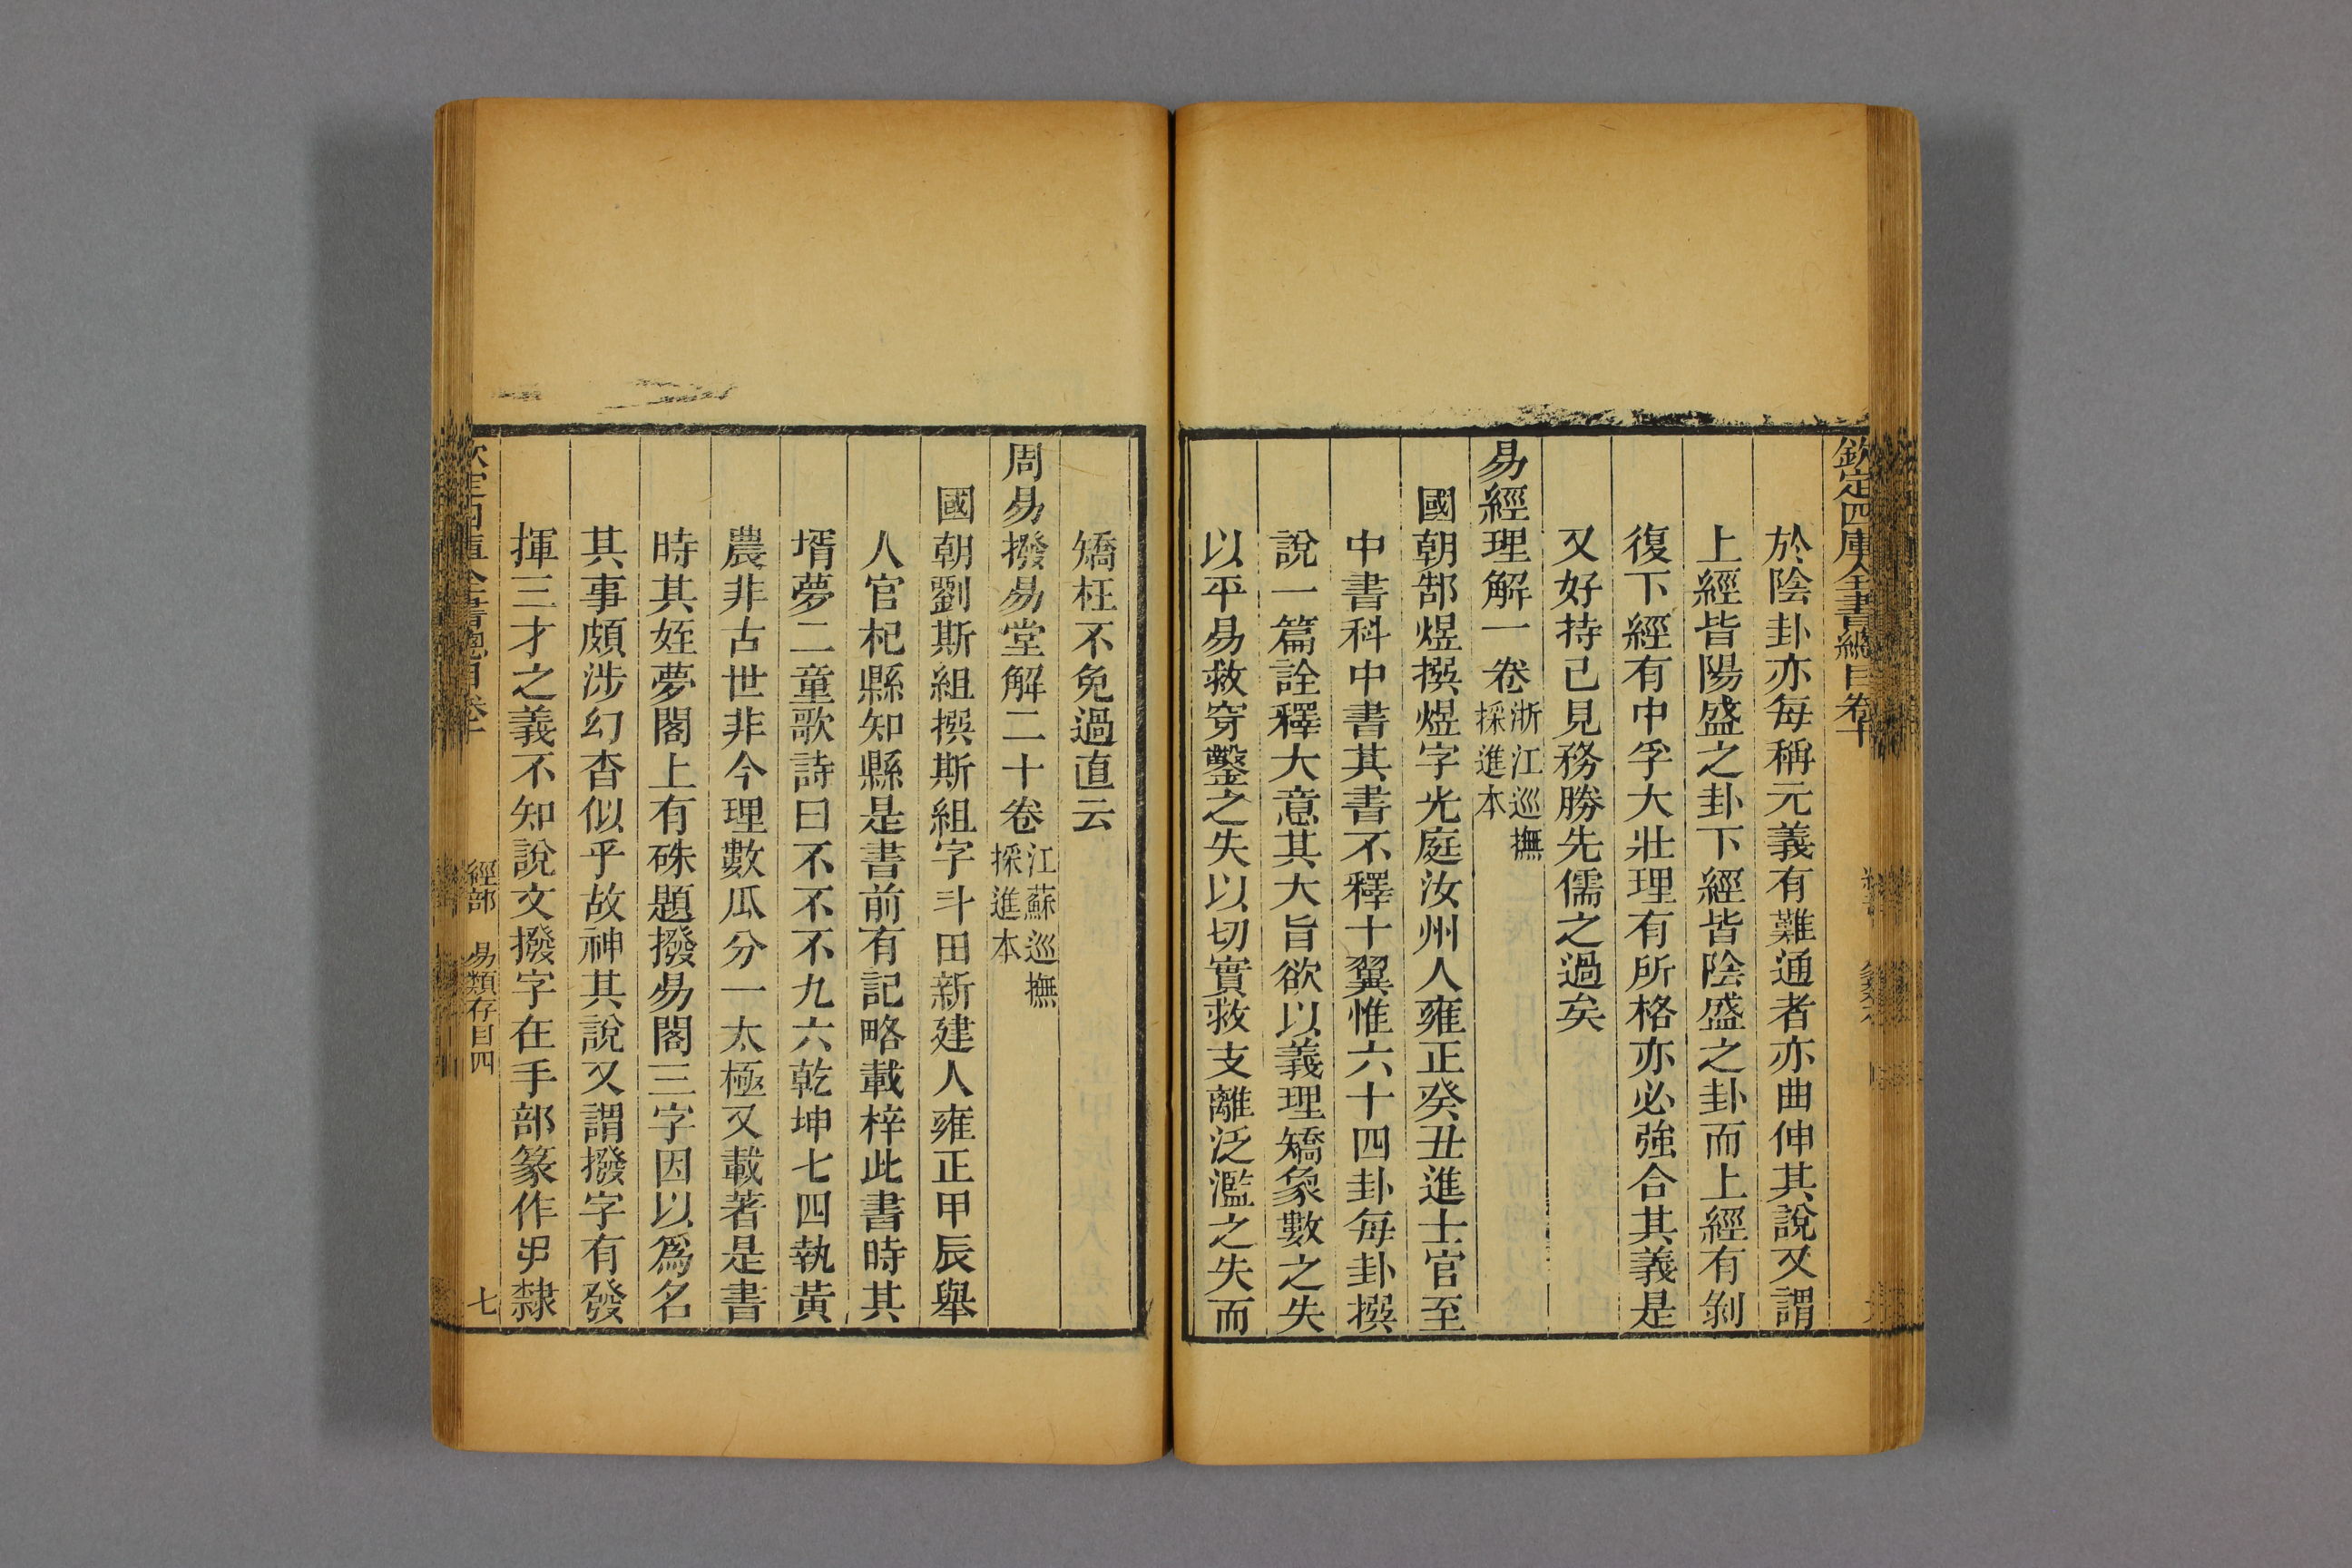 欽定四庫全書總目卷十
於陰卦亦每稱元義有難通者亦曲伸其說又謂
上經皆陽盛之卦下經皆陰盛之卦而上經有剝
復下經有中孚大壯理有所格亦必強合其義是
又好持己見務勝先儒之過矣
易經理解一卷浙江巡撫採進本
國朝郜煜撰煜字光庭汝州人雍正癸丑進士官至
中書科中書其書不釋十翼惟六十四卦每卦撰
說一篇詮釋大意其大旨欲以義理矯象數之失
以平易救穿鑿之失以切實救支離泛濫之失而
矯枉不免過直云
周易撥易堂解二十卷江蘇巡撫採進本
國朝劉斯組撰斯組字斗田新建人雍正甲辰舉
人官杞縣知縣是書前有記略載梓此書時其
壻夢二童歌詩曰不不不九六乾坤七四執黃
農非古世非今理數瓜分一太極又載著是書
時其姪夢閣上有硃題撥易閣三字因以爲名
其事頗涉幻杳似乎故神其說又謂撥字有發
揮三才之義不知說文撥字在手部篆作隸
欽定四庫全書總目卷十 經部 易類存目四 七